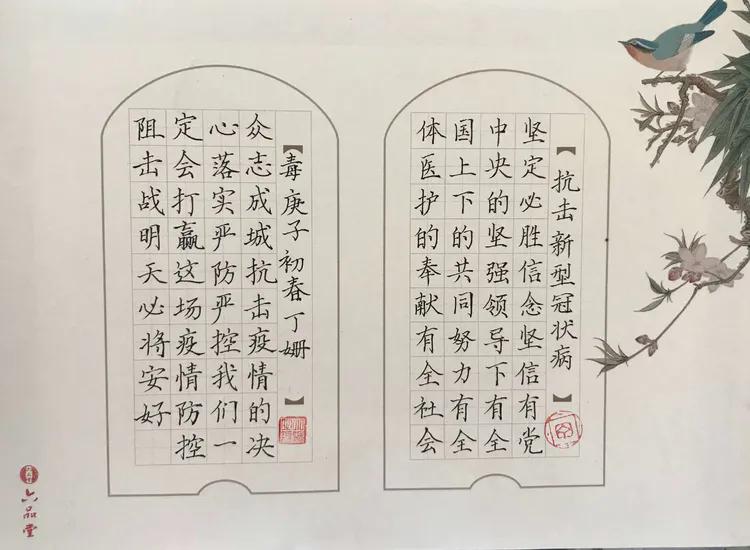 【抗击新型冠状病】
坚定必胜信念坚信有党
中央的坚强领导下有全
国上下的共同努力有全
体医护的奉献有全社会
【毒庚子初春丁姗】
众志成城抗击疫情的决
心落实严防严控我们一
定会打赢这场疫情防控
阻击战明天必将安好
六品堂